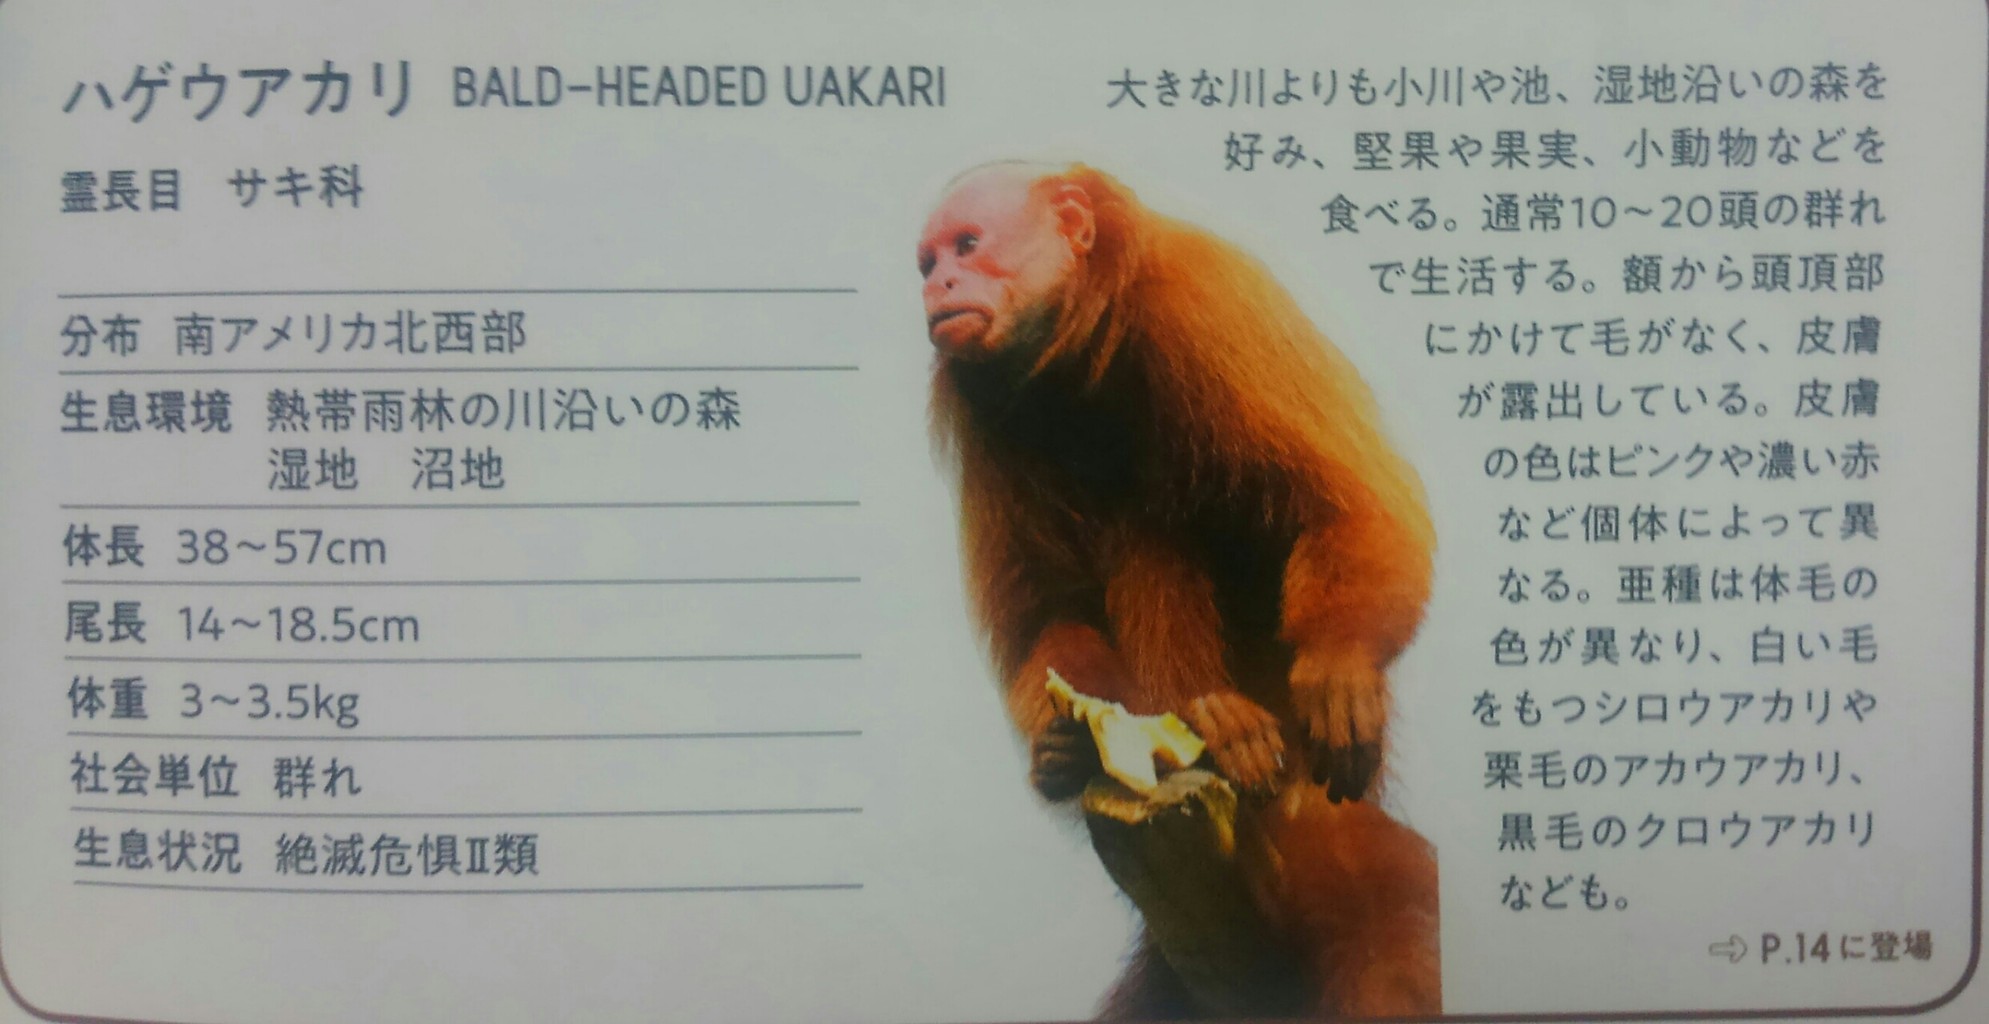 ハゲウアカリ BALD-HEADED UAKARI
霊長目 サキ科
分布 南アメリカ北西部
生息環境 熱帯雨林の川沿いの森
湿地 沼地
体長 38〜57cm
尾長 14〜18.5cm
体重 3〜3.5kg
社会単位 群れ
生息状況 絶滅危惧Ⅱ類
大きな川よりも小川や池、湿地沿いの森を
好み、堅果や果実、小動物などを
食べる。通常10〜20頭の群れ
で生活する。額から頭頂部
にかけて毛がなく、皮膚
が露出している。皮膚
の色はピンクや濃い赤
など個体によって異
なる。亜種は体毛の
色が異なり、白い毛
をもつシロウアカリや
栗毛のアカウアカリ、
黒毛のクロウアカリ
なども。
⇨ P.14に登場